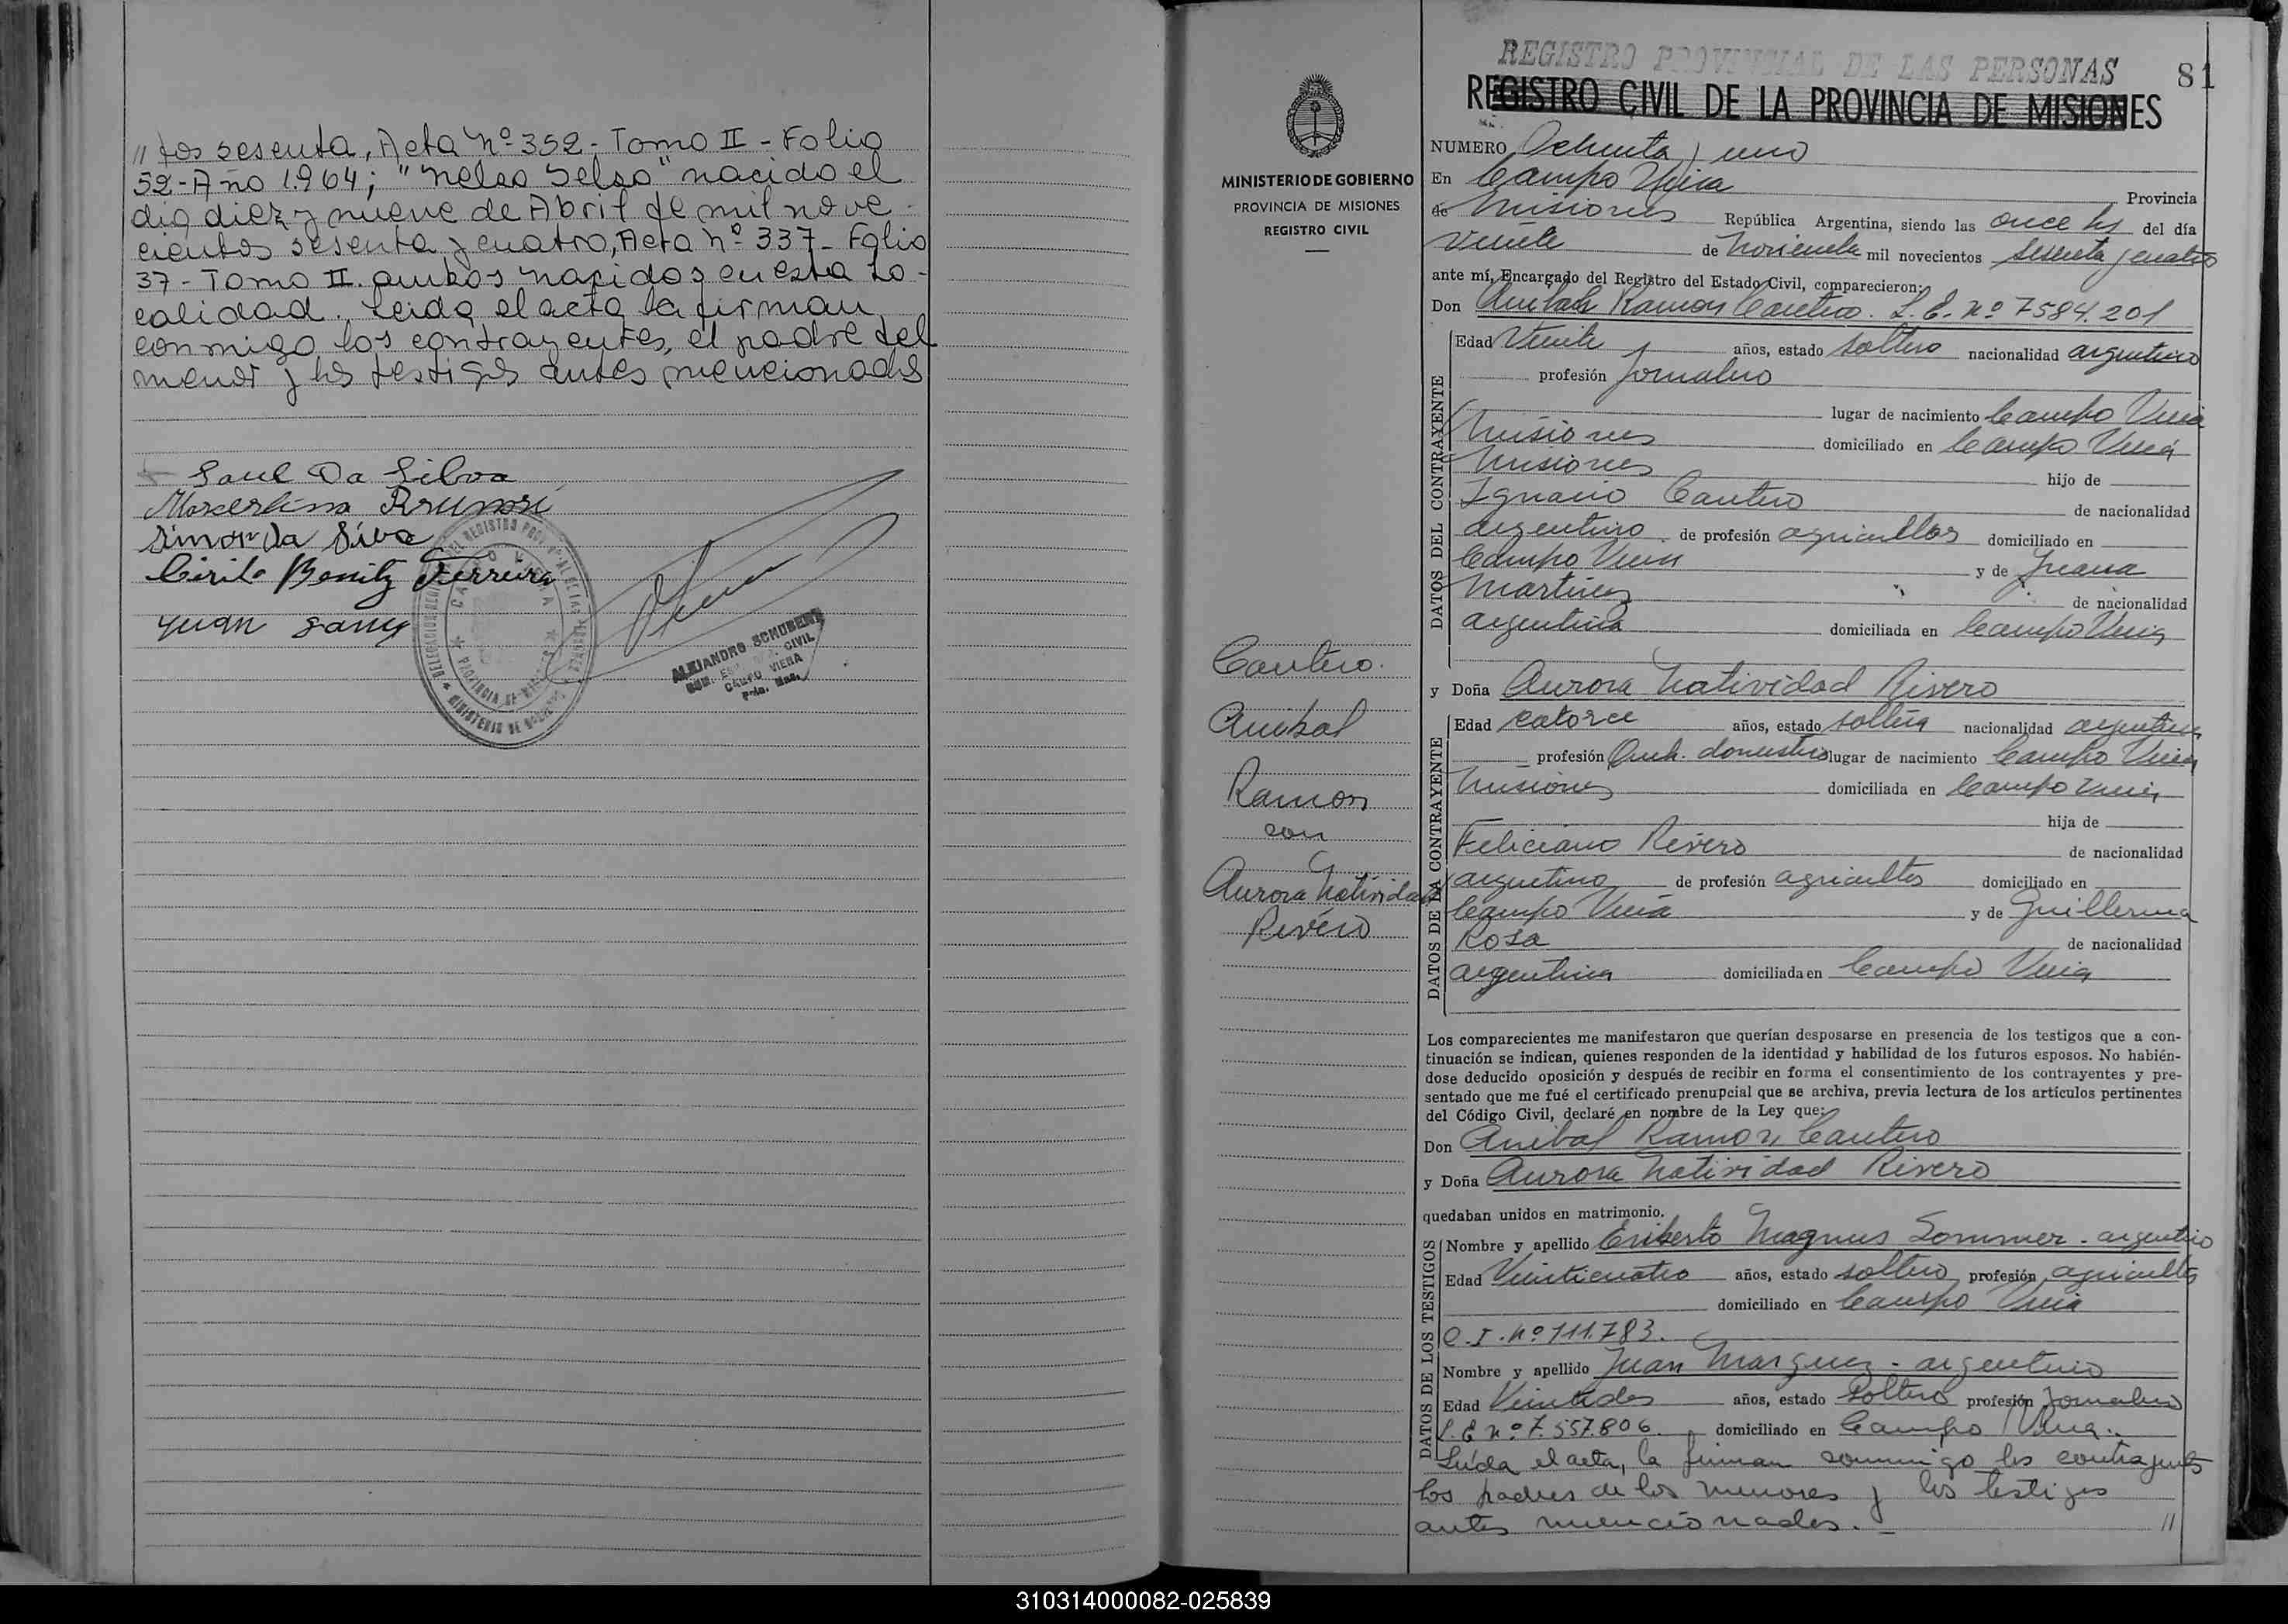 // tos sesenta, Acta Nº 352 - Tomo II - Folio
52 - Año 1.964; "Nelso Selso" nacido el
dia diez y nueve de Abril de mil nove-
cientos sesenta y cuatro, Acta Nº 337 - Folio
37 - Tomo II. ambos nacidos en esta lo-
calidad. Leida el acta la firman
conmigo los contrayentes, el padre del
menor y los testigos antes mencionados
Saul Da Silva
Marcerlina Brunori
Simon Da Silva
Cirilo Benitz Ferreira
Juan
ALEJANDRO SCHUBERT
CIVIL
CAMPO VIERA
Pcia. Mnes.
REGISTRO PROVINCIAL DE LAS PERSONAS
81
REGISTRO CIVIL DE LA PROVINCIA DE MISIONES
MINISTERIO DE GOBIERNO
PROVINCIA DE MISIONES
REGISTRO CIVIL
NUMERO Ochenta y uno
En Campo Viera Provincia
de Misiones República Argentina, siendo las once hs del día
veinte de Noviembre mil novecientos sesenta y cuatro
ante mí, Encargado del Registro del Estado Civil, comparecieron:
Don Anibal Ramon Cantero. L.E. Nº 7584.201
DATOS DEL CONTRAYENTE
Edad Veinte años, estado soltero nacionalidad argentino
profesión Jornalero
lugar de nacimiento Campo Viera
Misiones domiciliado en Campo Viera
Misiones hijo de
Ignacio Cantero de nacionalidad
argentino de profesión agricultor domiciliado en
Campo Viera y de Juana
Martinez de nacionalidad
argentina domiciliada en Campo Viera
Cantero
Anibal
Ramon
con
Aurora Natividad
Rivero
y Doña Aurora Natividad Rivero
DATOS DE LA CONTRAYENTE
Edad catorce años, estado soltera nacionalidad argentina
profesión Queh. domestico lugar de nacimiento Campo Viera
Misiones domiciliada en Campo Viera
hija de
Feliciano Rivero de nacionalidad
argentino de profesión agricultor domiciliado en
Campo Viera y de Guillerma
Rosa de nacionalidad
argentina domiciliada en Campo Viera
Los comparecientes me manifestaron que querían desposarse en presencia de los testigos que a con-
tinuación se indican, quienes responden de la identidad y habilidad de los futuros esposos. No habién-
dose deducido oposición y después de recibir en forma el consentimiento de los contrayentes y pre-
sentado que me fué el certificado prenupcial que se archiva, previa lectura de los artículos pertinentes
del Código Civil, declaré en nombre de la Ley que:
Don Anibal Ramon Cantero
y Doña Aurora Natividad Rivero
quedaban unidos en matrimonio.
DATOS DE LOS TESTIGOS
Nombre y apellido Eriberto Magnus Sommer - argentino
Edad Veinticuatro años, estado soltero profesión agricultor
domiciliado en Campo Viera
C.I. Nº 111.783.
Nombre y apellido Juan Marquez - argentino
Edad Veintidos años, estado soltero profesión Jornalero
L.E Nº 7.557.806. domiciliado en Campo Viera.
Leida el acta, la firman conmigo los contrayentes
los padres de los menores y los testigos
antes mencionados. - //
310314000082-025839